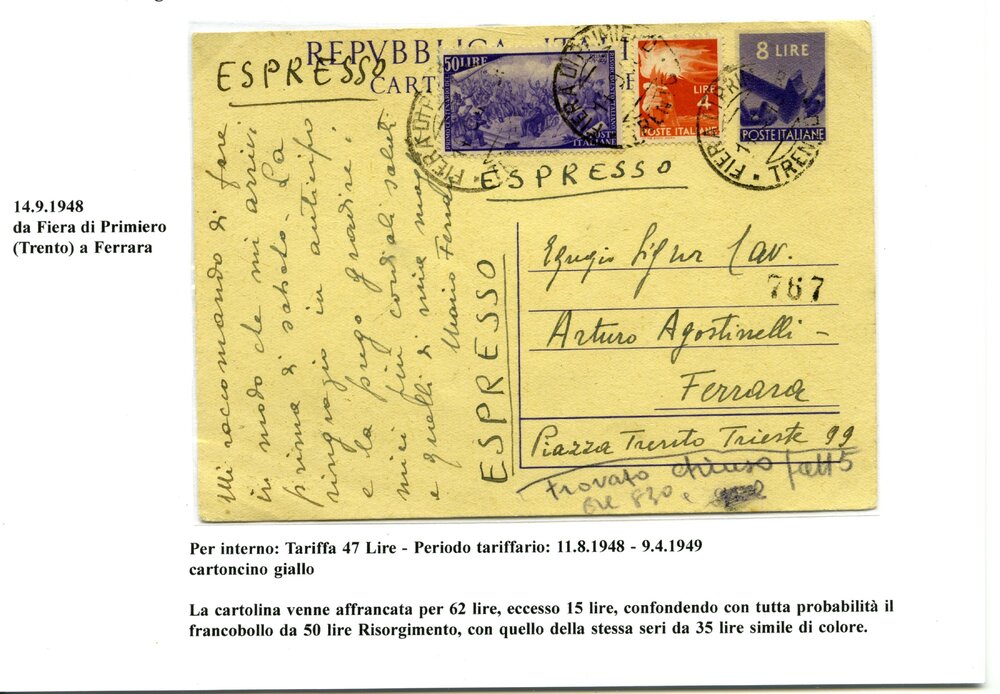 14.9.1948
da Fiera di Primiero
(Trento) a Ferrara
REPVBBLICA
CART
ESPRESSO
50 LIRE
ITALIANE
LIRE
4
POSTE ITALIANE
8 LIRE
POSTE ITALIANE
FIERA DI
TRENTO
ESPRESSO
ESPRESSO
Mi raccomando di fare
in modo che mi arrivi
prima di sabato. La
ringrazio in anticipo
e la prego gradire i
miei più cordiali saluti
e quelli di mia
Mario
Egregio Signor Cav.
787
Arturo Agostinelli -
Ferrara
Piazza Trento Trieste 99
trovato chiuso
ore 830 e
Per interno: Tariffa 47 Lire - Periodo tariffario: 11.8.1948 - 9.4.1949
cartoncino giallo
La cartolina venne affrancata per 62 lire, eccesso 15 lire, confondendo con tutta probabilità il
francobollo da 50 lire Risorgimento, con quello della stessa seri da 35 lire simile di colore.